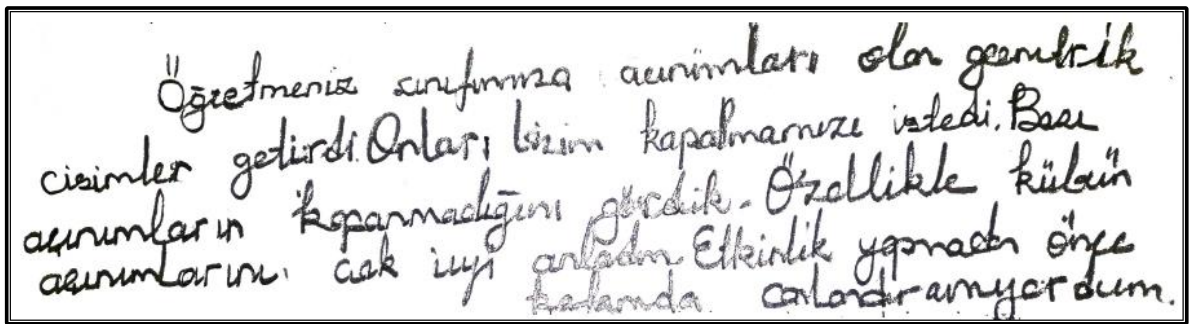 Öğretmeniz sınıfımıza açınımları olan geometrik
cisimler getirdi. Onları bizim kapatmamızı istedi. Bazı
açınımların kapanmadığını gördük. Özellikle kübün
açınımlarını çok iyi anladım Etkinlik yapmadan önce
kafamda canlandıramıyordum.